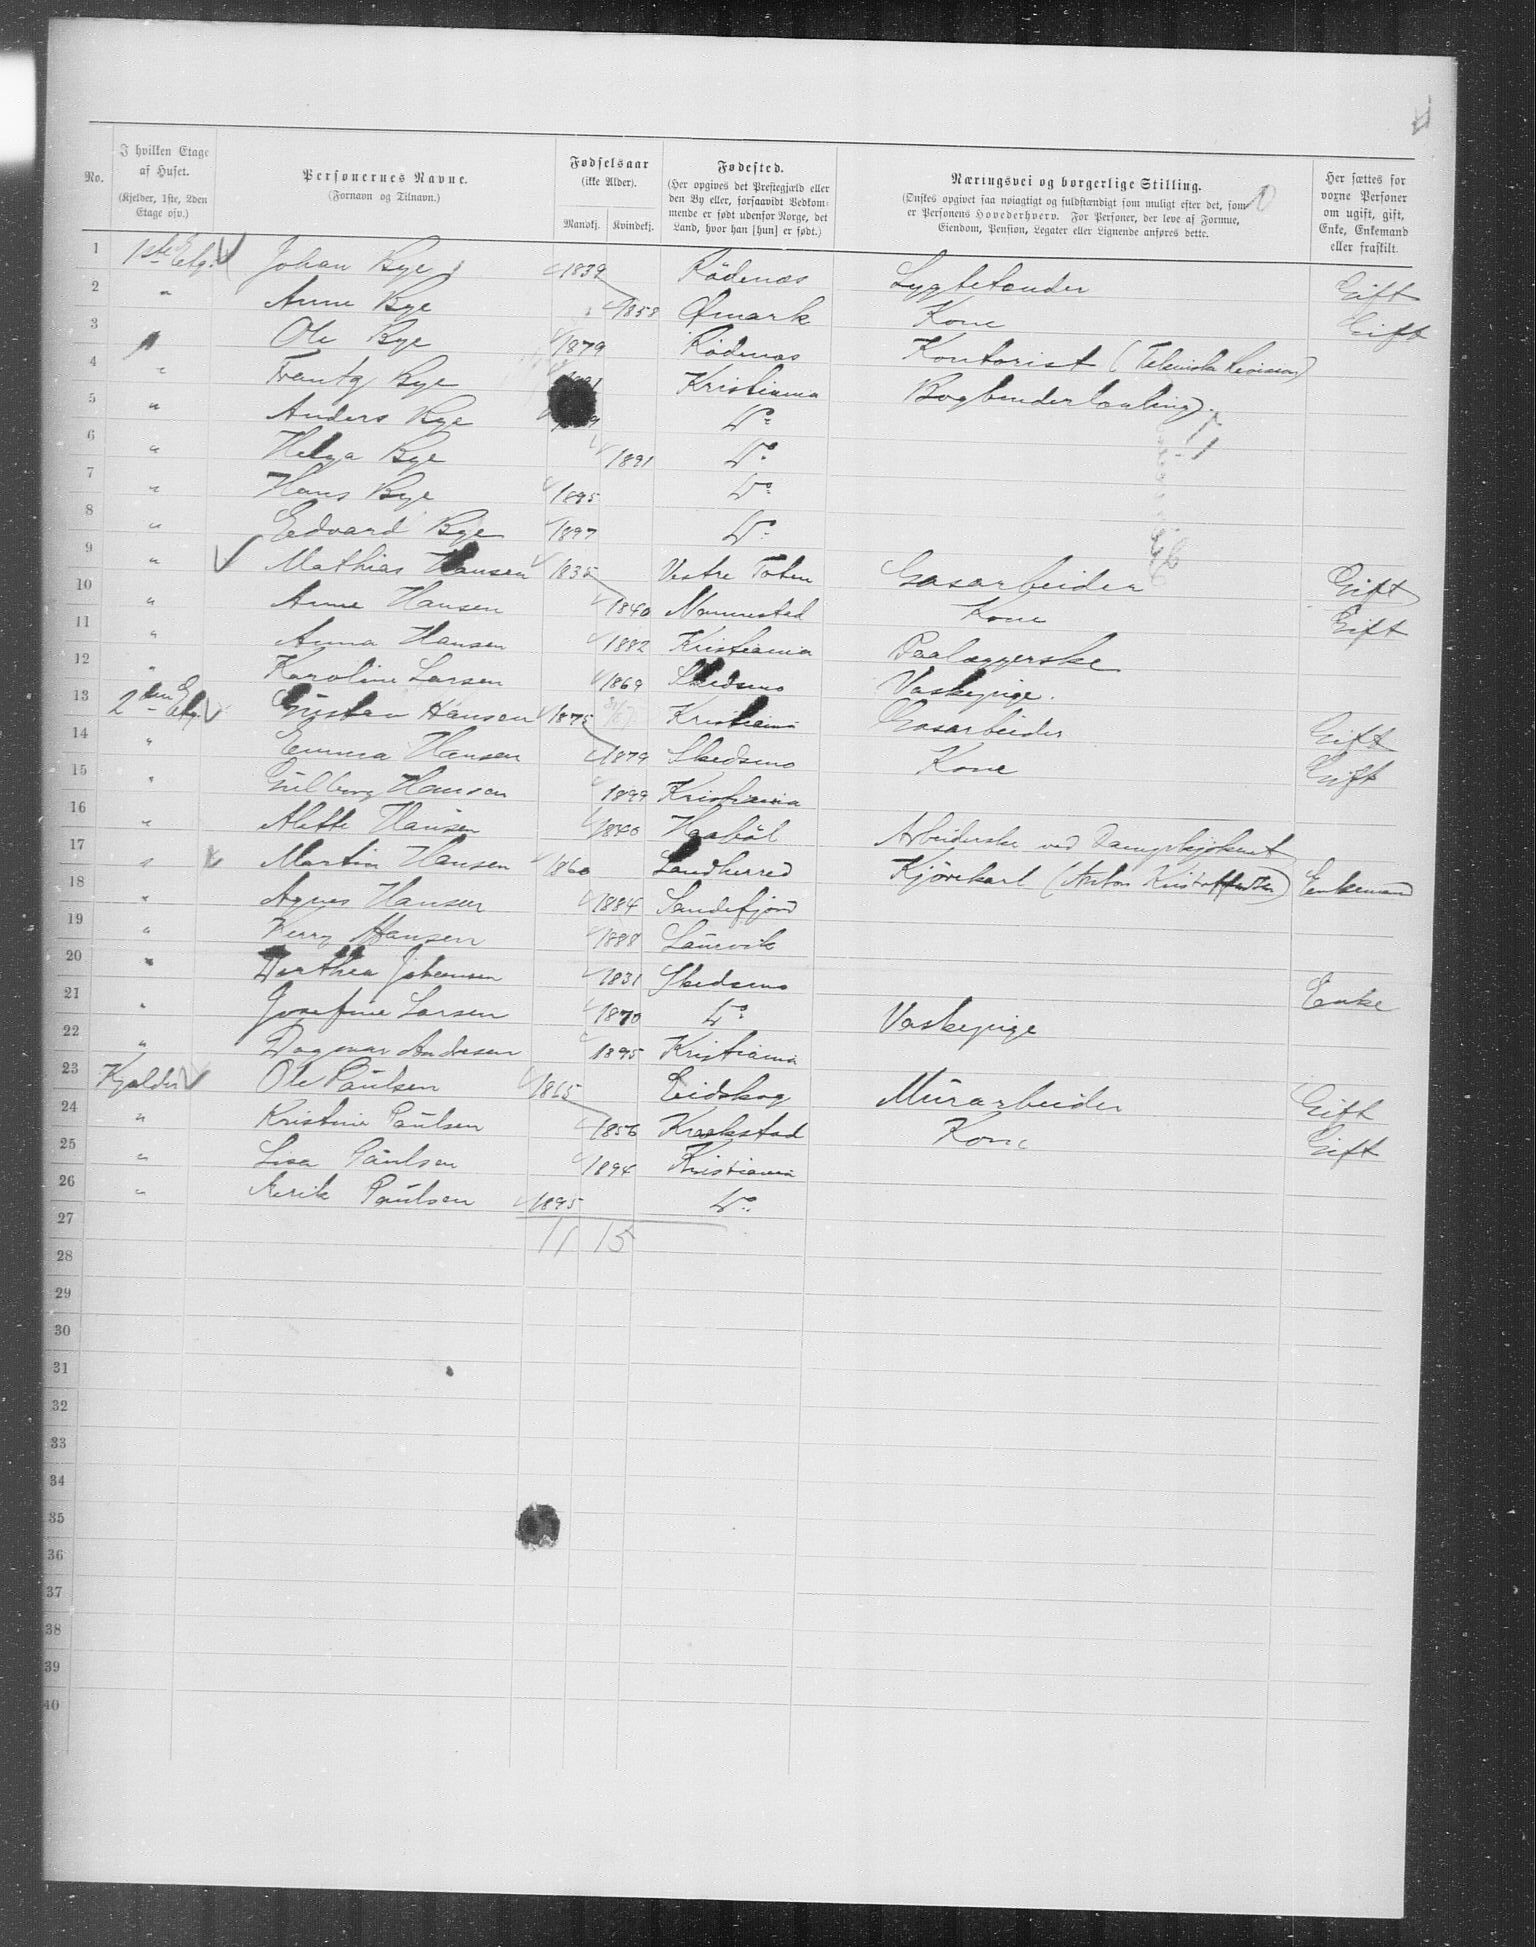 No.
I hvilken Etage af Huset.
(Kjelder, 1ste, 2den Etage osv.)
Personernes Navne.
(Fornavn og Tilnavn.)
Fødselsaar
(ikke Alder).
Mandkj. Kvindekj.
Fødested.
(Her opgives det Prestegjæld eller den By eller, forsaavidt Vedkommende er født udenfor Norge, det Land, hvor han [hun] er født.)
Næringsvei og borgerlige Stilling.
(Ønskes opgivet saa nøiagtigt og fuldstændigt som muligt efter det, som er Personens Hovederhverv. For Personer, der leve af Formue, Eiendom, Pension, Legater eller Lignende anføres dette.
Her sættes for voxne Personer om ugift, gift, Enke, Enkemand eller fraskilt.
1 1ste Etg. Johan Bye 1839 Rödenæs Lygtetænder Gift
2 " Anne Bye 1858 Ømark Kone Gift
3 " Ole Bye 1879 Rödenæs Kontorist
4 " Frantz Bye Kristiania Bogbinderlærling
5 " Anders Bye Do
6 " Helga Bye 1891 Do
7 " Hans Bye 1895 Do
8 " Eedvard Bye 1897 Do
9 " Mathias Hansen 1835 Vestre Toten Gasarbeider Gift
10 " Anne Hansen 1840 Nannestad Kone Gift
11 " Anna Hansen 1882 Kristiania Paalæggerske
12 " Karoline Larsen 1869 Skedsmo Vaskepige.
13 2den Etg. Gustav Hansen 1875 Kristiania Gasarbeider Gift
14 " Emma Hansen 1879 Skedsmo Kone Gift
15 " Gulborg Hansen 1899 Kristiania
16 " Alette Hansen 1840 Haabøl Arbeiderske ved Dampkjøkenet
17 " Martin Hansen 1860 Sandherred Kjørekarl (Anton Kristoffersen) Enkemand
18 " Agnes Hansen 1884 Sandefjord
19 " Hansen 1888 Laurvik
20 " Dorthea Johansen 1831 Skedsmo Enke
21 " Josefine Larsen 1870 Do Vaskepige
22 " Dagmar Andresen 1895 Kristiania
23 Kjælder Ole Paulsen 1865 Eidskog Murarbeider Gift
24 " Kristine Paulsen 1856 Kraakstad Kone Gift
25 " Lisa Paulsen 1894 Kristiania
26 " Aerik Paulsen 1895 Do
27 11 15
28
29
30
31
32
33
34
35
36
37
38
39
40